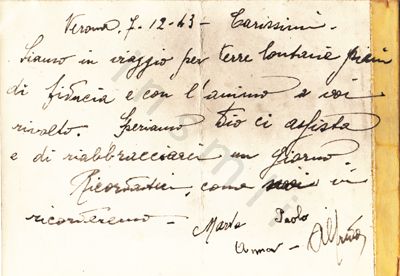 Verona, 7-12-43 - Carissimi -
Siamo in viaggio per terre lontane pieni
di fiducia e con l'animo a voi
rivolto. Speriamo Dio ci assista
e di riabbracciarci un giorno.
Ricordateci, come noi vi
ricorderemo -
Maria Paolo
Anna - Alfredo